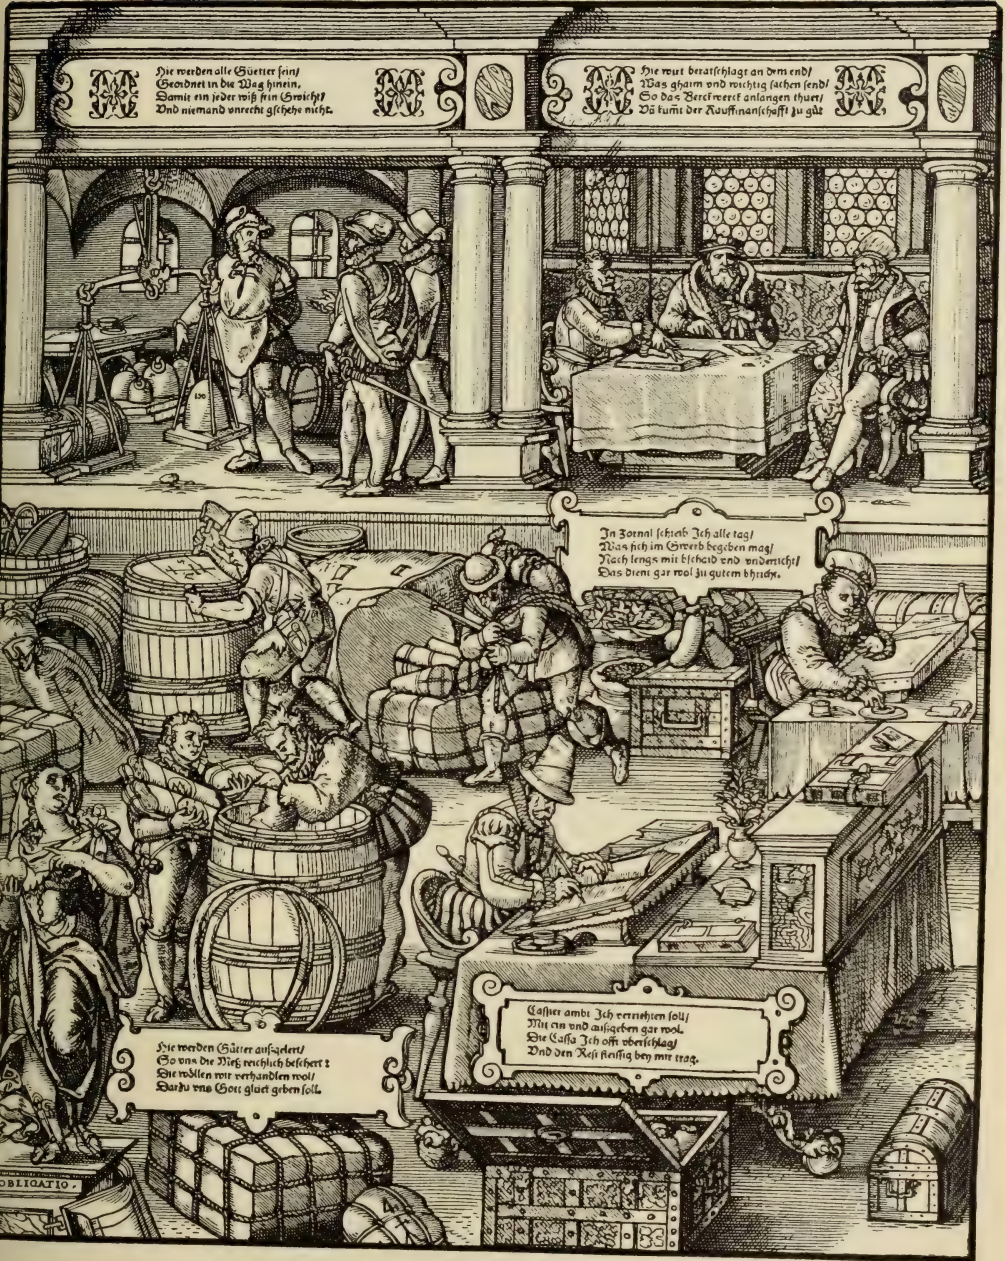 Hie werden alle Güetter fein/
Geordnet in die Wag hinein.
Damit ein jeder wiß sein Gwicht/
Vnd niemand vnrecht gschehe nicht.
Hie wirt beratschlagt an dem end/
Was ghaim vnd wichtig sachen send/
So das Berckwerck anlangen thuet/
Vñ kumt der Kauffmanschafft zu gůt
In Zornal schreib Ich alle tag/
Was sich im Gwerb begeben mag/
Nach lengs mit bschaid vnd vnderricht/
Das dient gar wol zu gutem bhricht.
Cassier ambt Ich verrichten soll/
Mit ein vnd außgeben gar wol.
Die Cassa Ich offt vberschlag/
Vnd den Rest fleissig bey mir trag.
Hie werden Gütter außgelert/
So vns die Meß reichlich beschert:
Die wöllen wir verhandlen wol/
Darzu vns Gott glück geben soll.
OBLIGATIO.